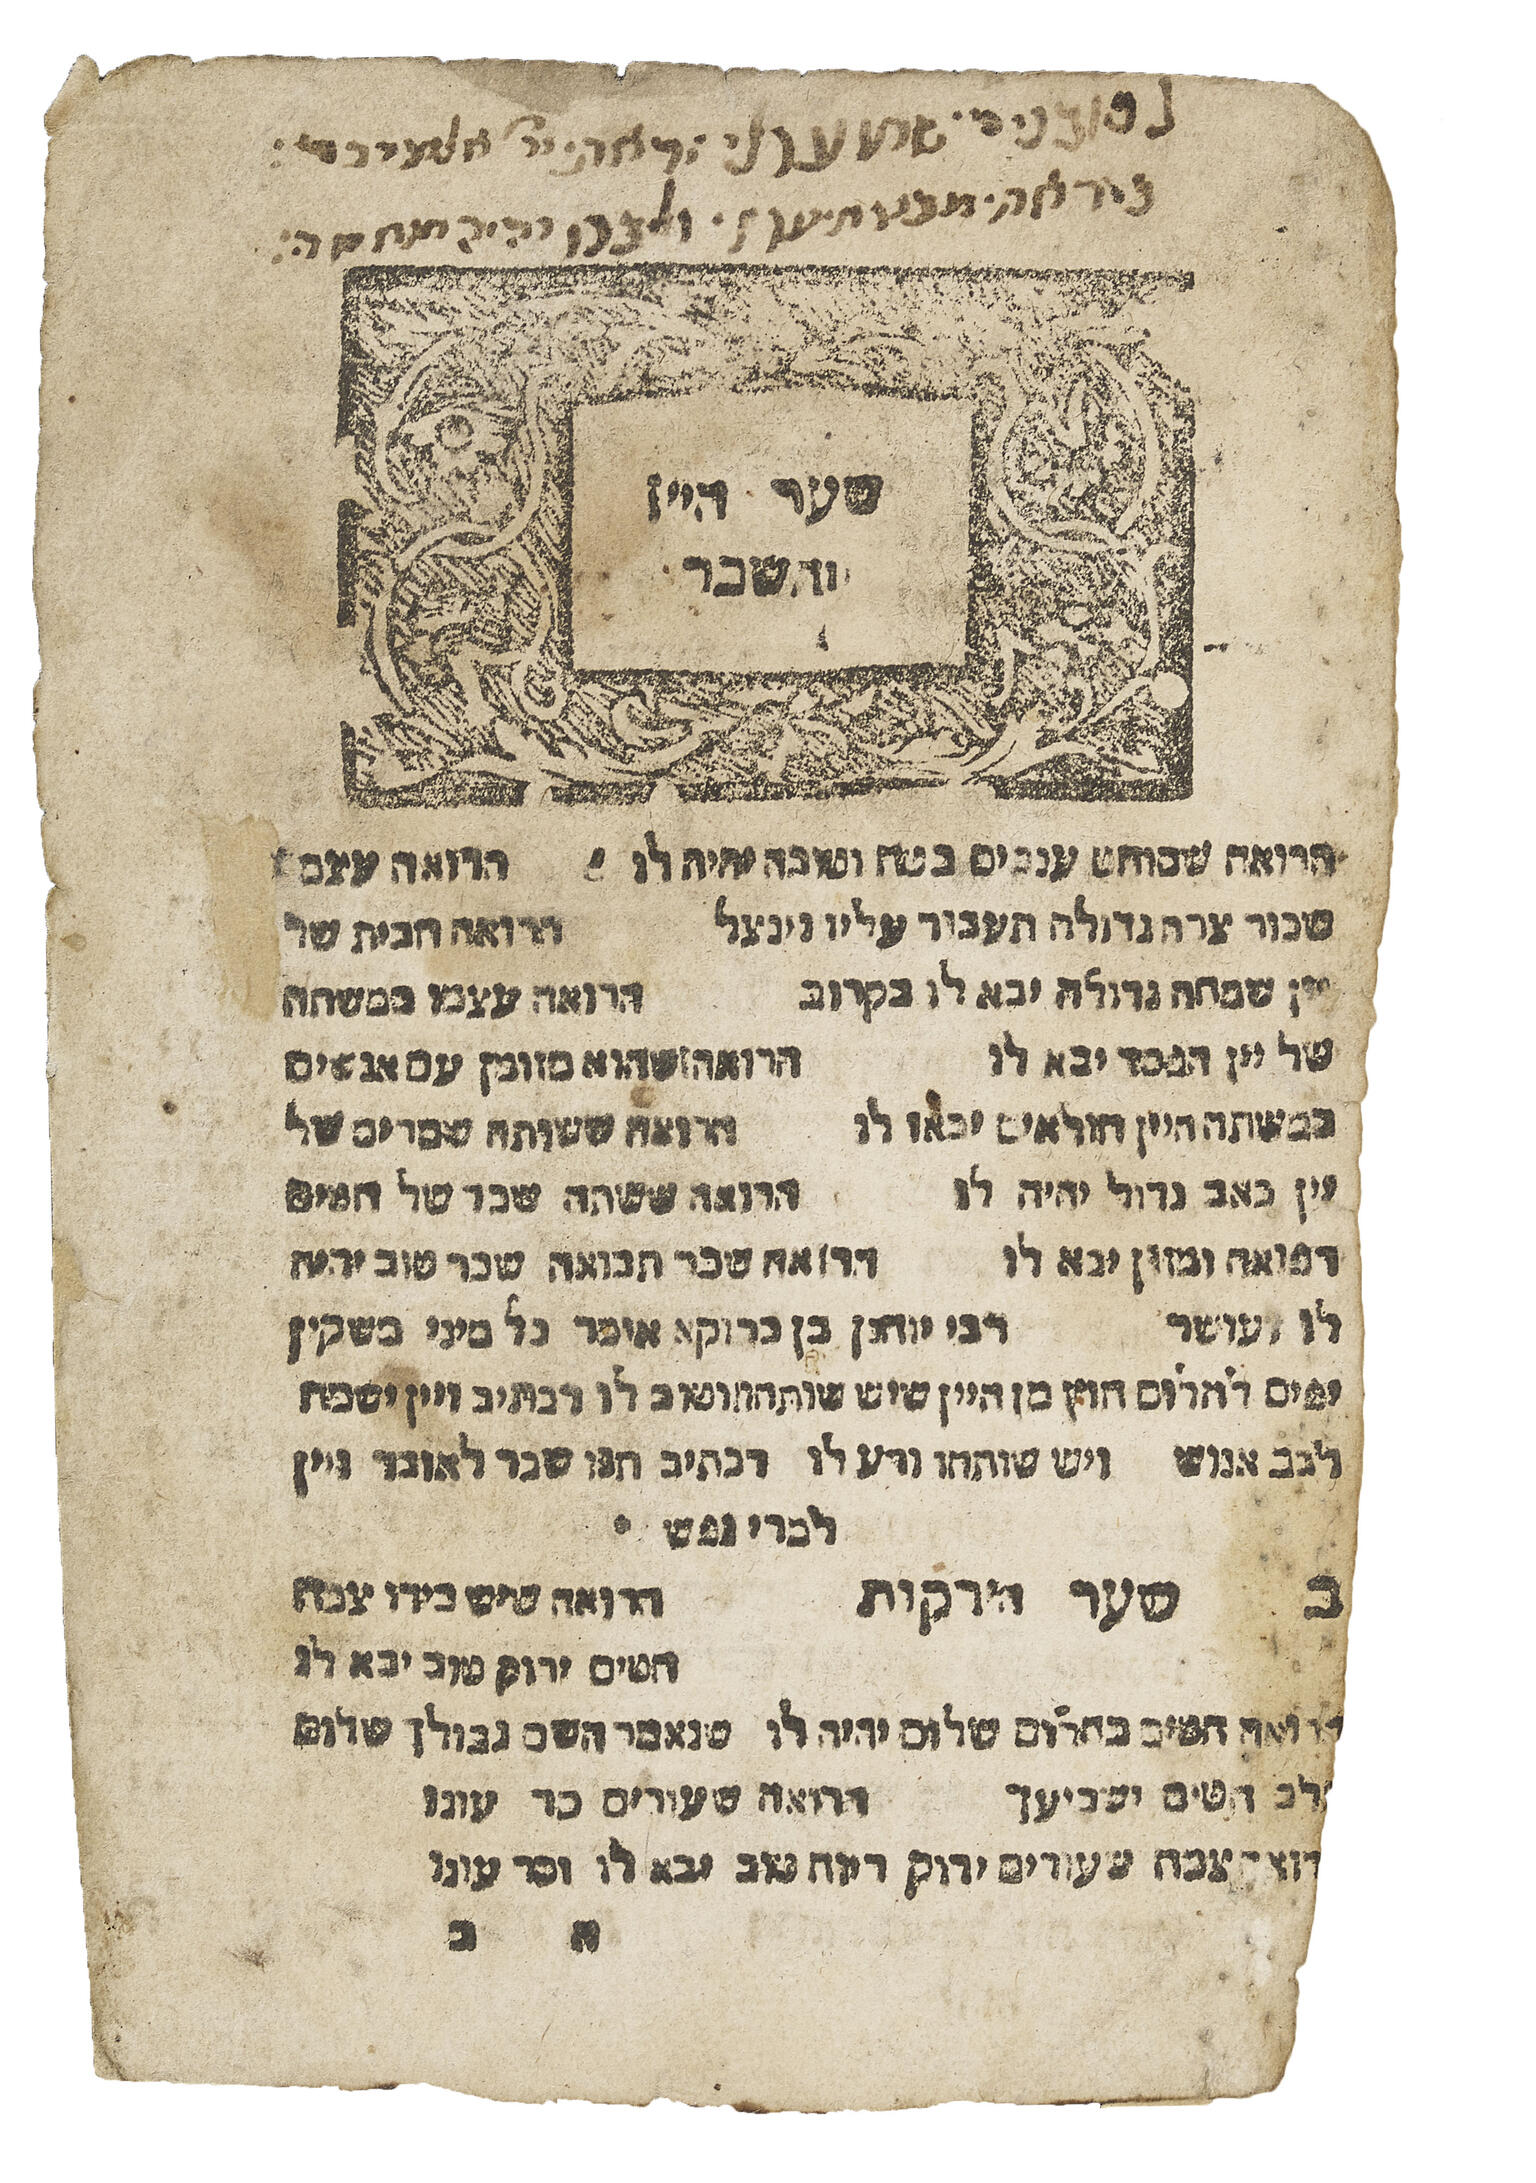 שער היין
והשכר
הרואה שסוחט ענבים בטח וטובה יהיה לו הרואה עצמו
שכור צרה גדולה תעבור עליו וינצל הרואה חבית של
יין שמחה גדולה יבא לו בקרוב הרואה עצמו במשתה
של יין הפסד יבא לו הרואה שהוא מזומן עם אנשים
במשתה היין חולאים יבואו לו הרואה ששותה שמרים של
יין כאב גדול יהיה לו הרואה ששתה שכר של חטים
רפואה ומזון יבא לו הרואה שכר תבואה שכר טוב יהיה
לו ועושר רבי יוחנן בן ברוקא אומר כל מיני משקין
יפים לחלום חוץ מן היין שיש שותהו וטוב לו דכתיב ויין ישמח
לבב אנוש ויש שותהו ורע לו דכתיב תנו שכר לאובד ויין
למרי נפש
ב שער הירקות הרואה שיש בידו צמח
חטים ירוק טוב יבא לו
הרואה חטים בחלום שלום יהיה לו שנאמר השם גבולך שלום
חלב חטים ישביעך הרואה שעורים סר עונו
הרואה צמח שעורים ירוק ריוח טוב יבא לו וסר עונו
א ב